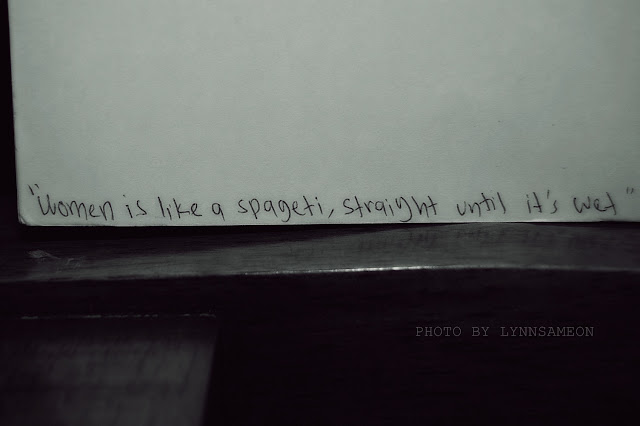 "women is like a spageti, straight until it's wet"
PHOTO BY LYNNSAMEON